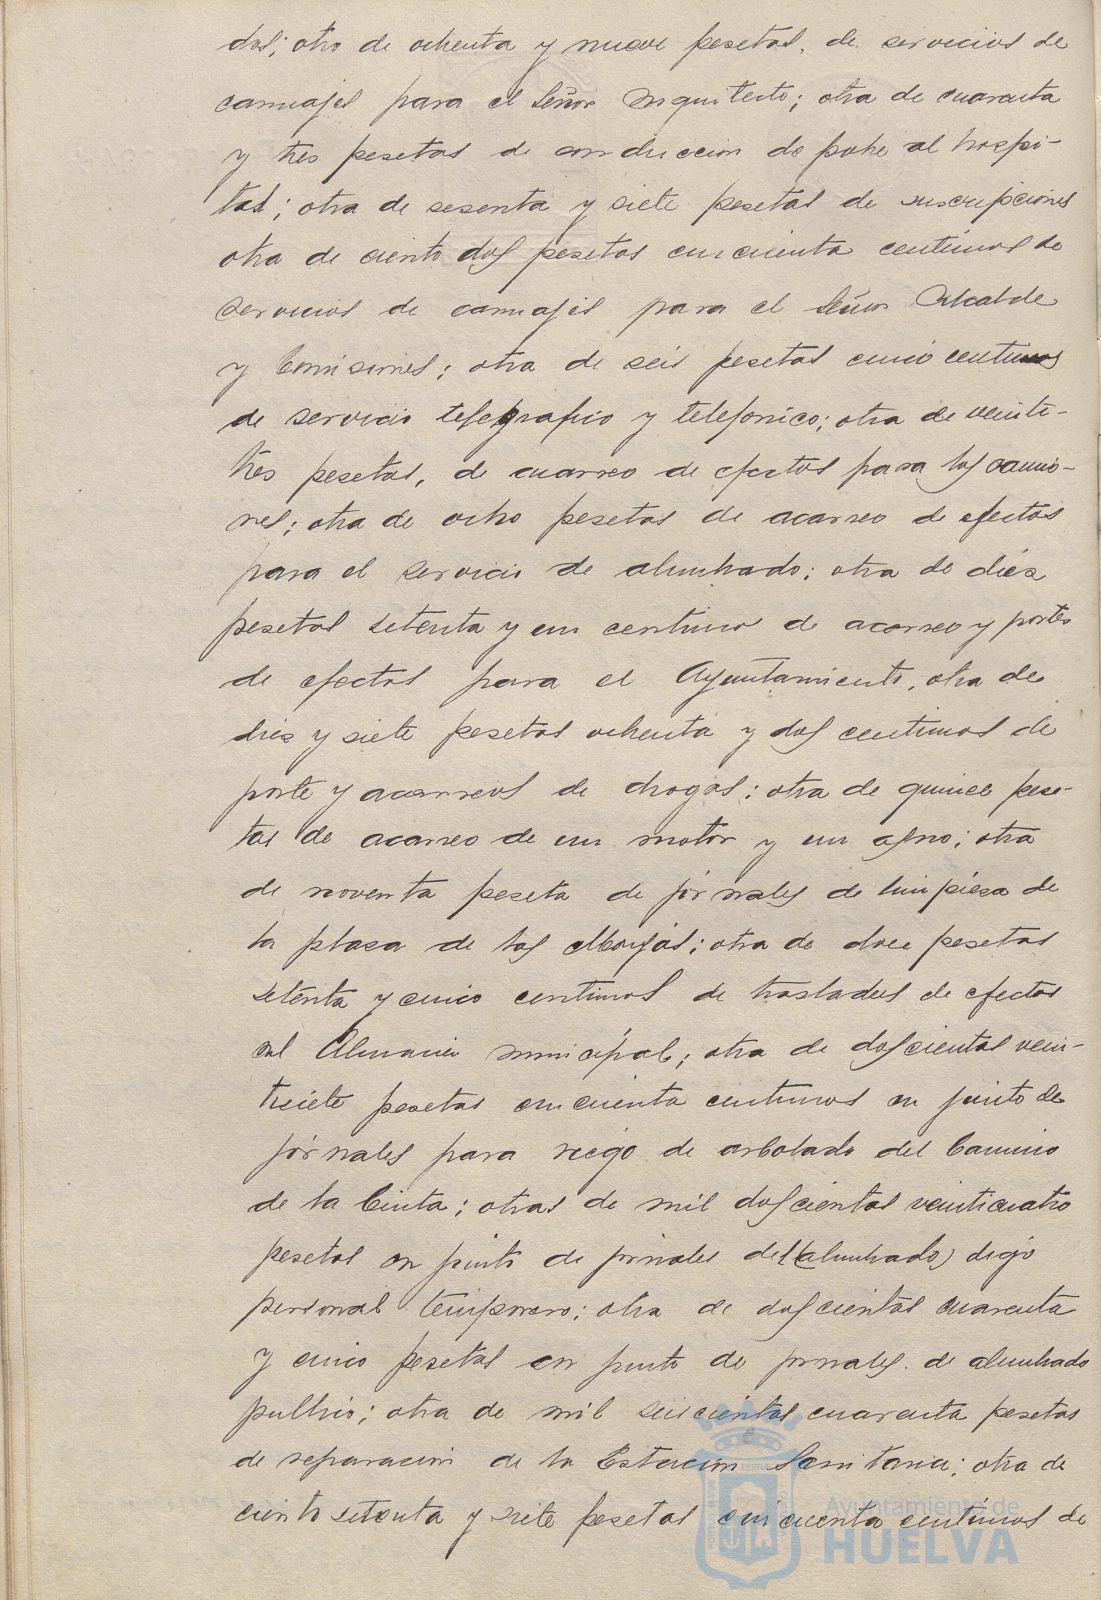 dos; otro de ochenta y nueve pesetas, de servicios de
carruajes para el Señor Arquitecto; otra de cuarenta
y tres pesetas de conducción de pobre al hospi-
tal; otra de sesenta y siete pesetas de suscripciones
otra de ciento dos pesetas cincuenta centimos de
servicios de carruajes para el Señor Alcalde
y Comisiones; otra de seis pesetas cinco centimos
de servicio telegrafico y telefonico; otra de veinte-
tres pesetas, de acarreo de efectos para los camio-
nes; otra de ocho pesetas de acarreo de efectos
para el servicio de alumbrado; otra de diez
pesetas setenta y un centimo de acarreo y portes
de efectos para el Ayuntamiento, otra de
diez y siete pesetas ochenta y dos centimos de
porte y acarreos de drogas; otra de quince pese-
tas de acarreo de un motor y un asno; otra
de noventa peseta de jornales de limpieza de
la plaza de las Monjas; otra de doce pesetas
setenta y cinco centimos de traslados de efectos
al Almacen municipal; otra de doscientas vein-
tisiete pesetas cincuenta centimos en junto de
jornales para riego de arbolado del Camino
de la Cinta; otras de mil doscientas veinticuatro
pesetas en junto de jornales del (alumbrado) digo
personal temporero; otra de doscientas cuarenta
y cinco pesetas en junto de jornales de alumbrado
publico; otra de mil seiscientas cuarenta pesetas
de reparación de la Estación Sanitaria; otra de
ciento setenta y siete pesetas cincuenta centimos de
Ayuntamiento de
HUELVA